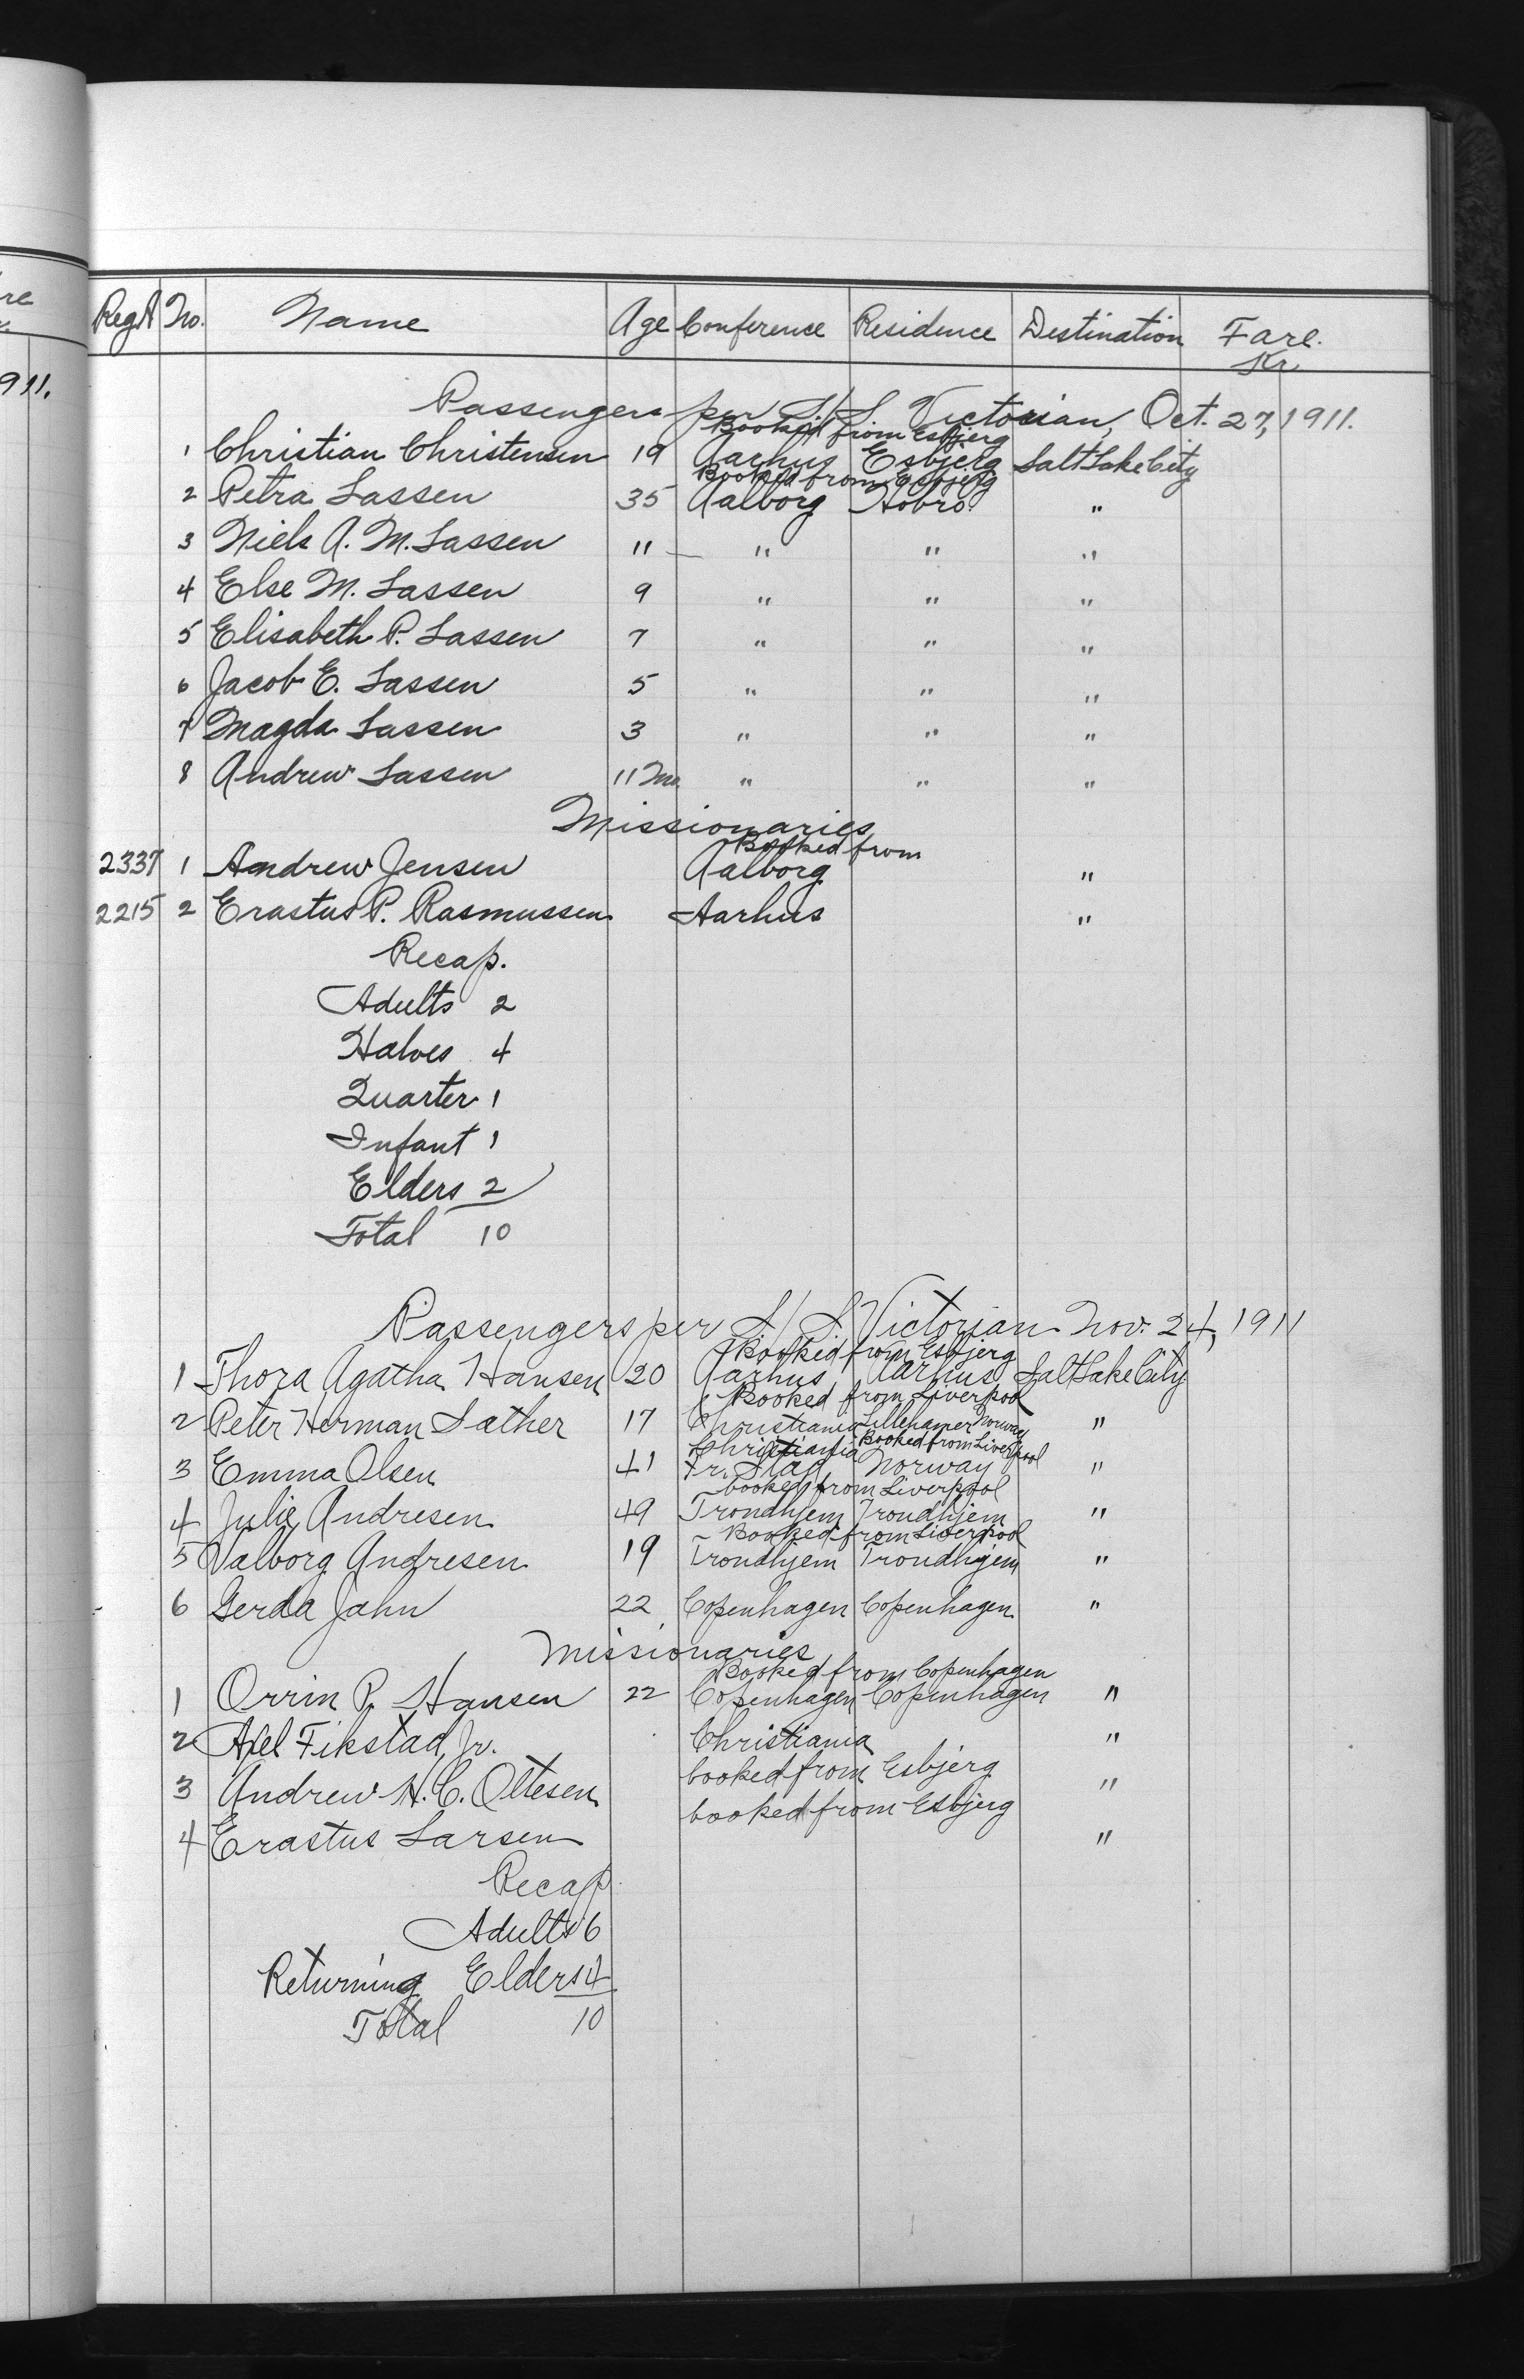 re
911.
Reg# No. Name Age Conference Residence Destination Fare.
Kr.
Passengers per S/S Victorian, Oct. 27, 1911.
Booked from Esbjerg
1 Christian Christensen 19 Aarhus Esbjerg Salt Lake City
Booked from Esbjerg
2 Petra Lassen 35 Aalborg Hobro "
3 Niels A. M. Lassen 11 — " " "
4 Else M. Lassen 9 " " "
5 Elisabeth P. Lassen 7 " " "
6 Jacob E. Lassen 5 " " "
7 Magda Lassen 3 " " "
8 Andrew Lassen 11 Mo. " " "
Missionaries
Booked from
2337 1 Andrew Jensen Aalborg "
2215 2 Erastus P. Rasmussen Aarhus "
Recap.
Adults 2
Halves 4
Quarter 1
Infant 1
Elders 2
Total 10
Passengers per S/S Victorian Nov. 24, 1911
Booked from Esbjerg
1 Thora Agatha Hansen 20 Aarhus Aarhus Salt Lake City
Booked from Liverpool
2 Peter Herman Sather 17 Christiania Lillehamer Norway "
Christiania Booked from Liverpool
3 Emma Olsen 41 Fr. Stad Norway "
booked from Liverpool
4 Julie Andresen 49 Trondhjem Trondhjem "
Booked from Liverpool
5 Valborg Andresen 19 Trondhjem Trondhjem "
6 Gerda Jahn 22 Copenhagen Copenhagen "
Missionaries
Booked from Copenhagen
1 Orrin P. Hansen 22 Copenhagen Copenhagen "
2 Axel Fikstad, Jr. Christiania "
3 Andrew H. C. Oltesen booked from Esbjerg "
4 Erastus Larsen booked from Esbjerg "
Recap.
Adults 6
Returning Elders 4
Total 10